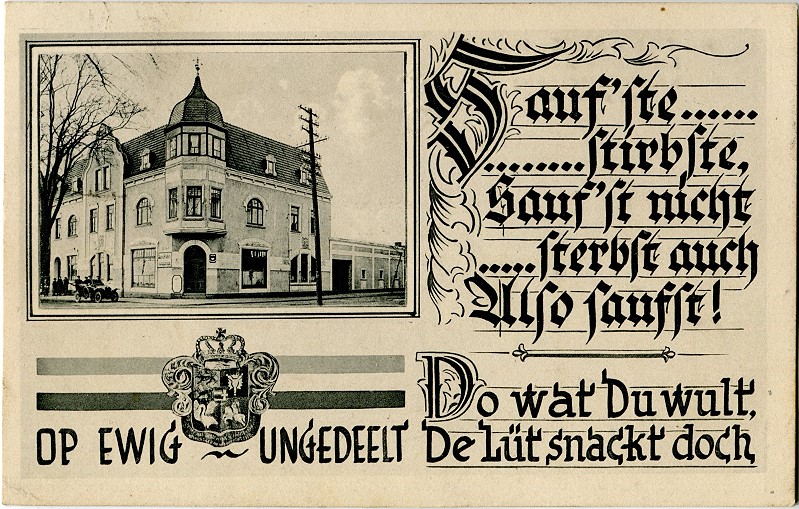 Sauf'ste......
........stirbste,
Sauf'st nicht
.....sterbst auch
Also saufst!
Do wat Du wult,
De Lüt snackt doch
OP EWIG UNGEDEELT